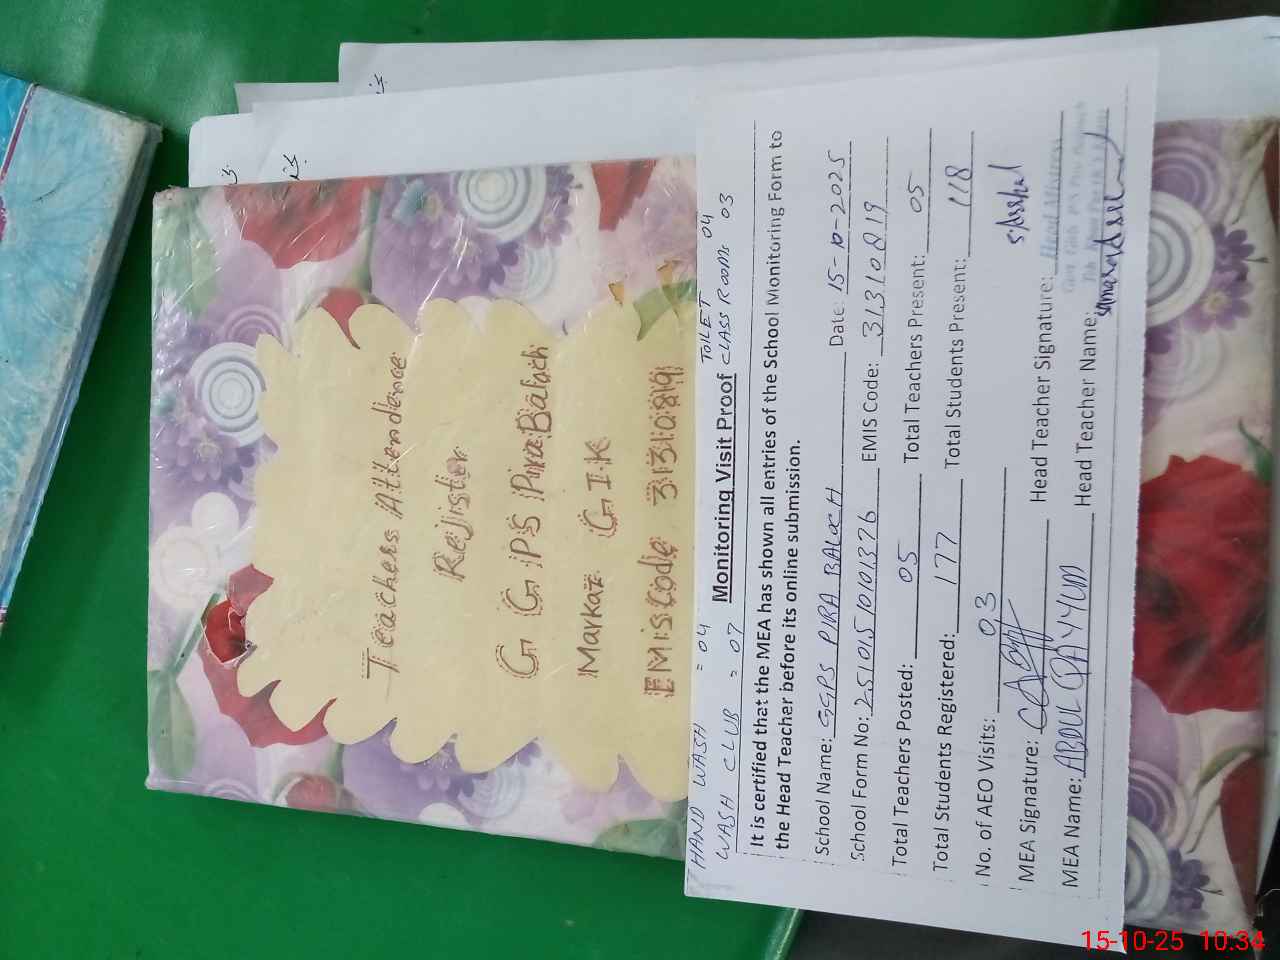 Teachers Attendence
Rejister
G G P S Pira Baloch
Markaz G I K
EMis Code 31310819
HAND WASH = 04 TOILET 04
WASH CLUB = 07 CLASS ROOMS 03
Monitoring Visit Proof
It is certified that the MEA has shown all entries of the School Monitoring Form to
the Head Teacher before its online submission.
School Name: GGPS PIRA BALOCH Date: 15-10-2025
School Form No: 25101510101326 EMIS Code: 31310819
Total Teachers Posted: 05 Total Teachers Present: 05
Total Students Registered: 177 Total Students Present: 118
No. of AEO Visits: 03
MEA Signature: Head Teacher Signature:
Head Mistress
MEA Name: ABDUL QAYYUM Head Teacher Name:
15-10-25 10:34